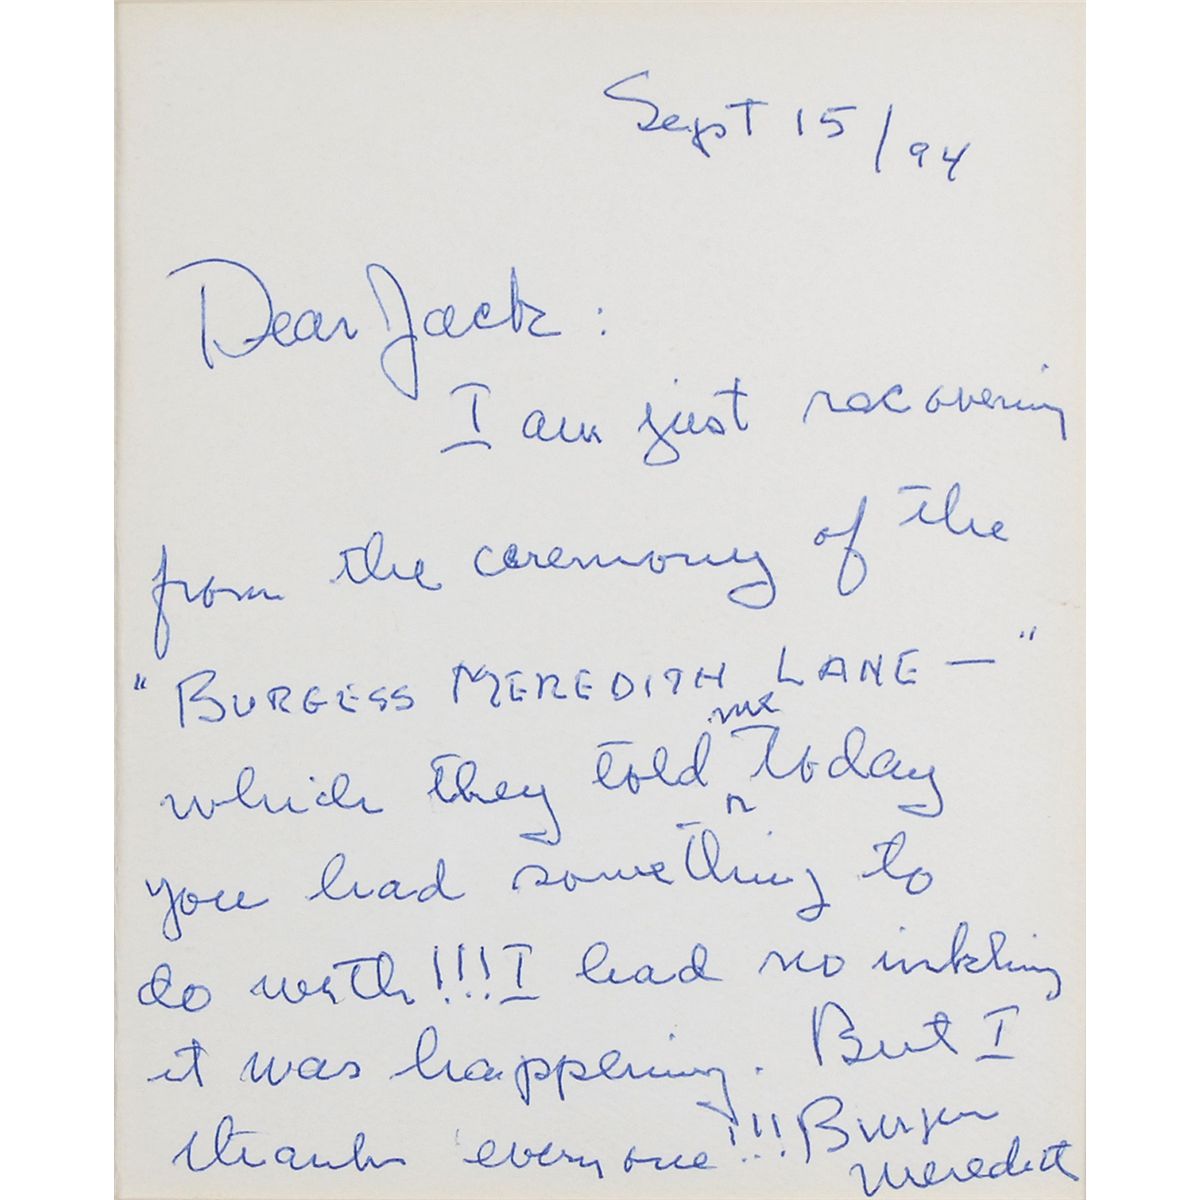 Sept 15/94
Dear Jack:
I am just recovering
from the ceremony of the
"BURGESS MEREDITH LANE—"
me
which they told ^ today
you had something to
do with!!! I had no inkling
it was happening. But I
thank everyone!!! Burgess
Meredith